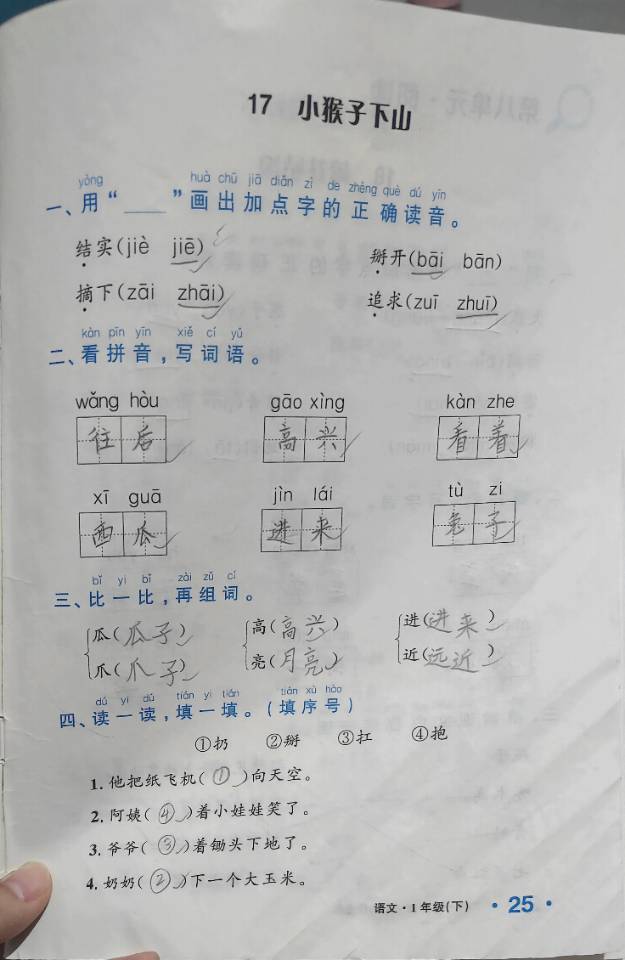 17 小猴子下山
yòng huà chū jiā diǎn zì de zhèng què dú yīn
一、用“____”画出加点字的正确读音。
结实(jiè jiē) 掰开(bāi bān)
摘下(zāi zhāi) 追求(zuī zhuī)
kàn pīn yīn xiě cí yǔ
二、看拼音,写词语。
wǎng hòu gāo xìng kàn zhe
往后 高兴 看着
xī guā jìn lái tù zi
西瓜 进来 兔子
bǐ yi bǐ zài zǔ cí
三、比一比,再组词。
瓜(瓜子) 高(高兴) 进(进来)
爪(爪子) 亮(月亮) 近(远近)
dú yi dú tián yi tián tián xù hào
四、读一读,填一填。(填序号)
①扔 ②掰 ③扛 ④抱
1. 他把纸飞机(①)向天空。
2. 阿姨(④)着小娃娃笑了。
3. 爷爷(③)着锄头下地了。
4. 奶奶(②)下一个大玉米。
语文·1年级(下) ·25·